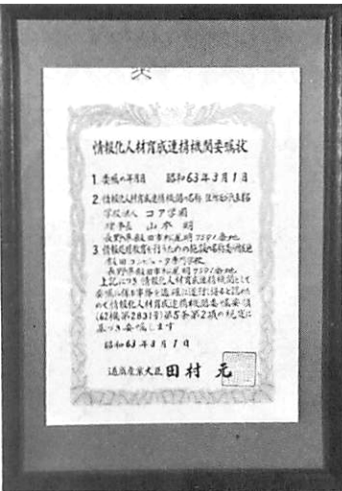 情報化人材育成連携機関委嘱状
1. 委嘱の年月日 昭和63年3月1日
2. 情報化人材育成連携機関の名称 住所及び代表者名
学校法人 コア学園
理事長 山本 明
長野県飯田市松尾明7591番地
3. 情報処理教育を行うための施設の名称及び所在地
飯田コンピュータ専門学校
長野県飯田市松尾明7591番地
上記につき情報化人材育成連携機関として
委嘱に係る事務を適確に遂行し得ると認め
たので情報化人材育成連携機関委嘱要領
(62機第2831号)第5条第2項の規定に
基づき委嘱します
昭和63年3月1日
通商産業大臣 田村 元